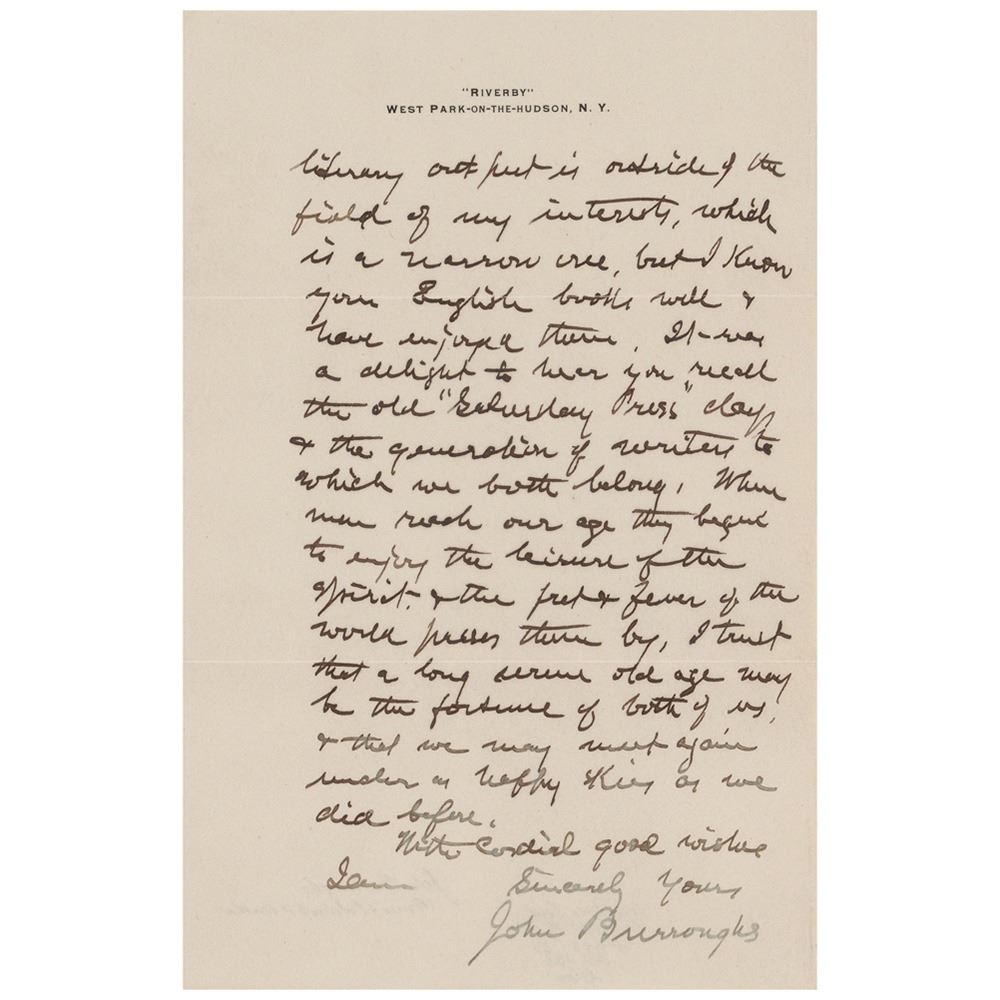 "RIVERBY"
WEST PARK-ON-THE-HUDSON, N. Y.
literary output is outside of the
field of my interests, which
is a narrow one, but I know
your English books well &
have enjoyed them. It was
a delight to hear you recall
the old "Saturday Press" days
& the generation of writers to
which we both belong. When
men reach our age they begin
to enjoy the leisure of the
spirit. & the fret & fever of the
world passes them by, I trust
that a long serene old age may
be the fortune of both of us,
& that we may meet again
under as happy skies as we
did before.
With Cordial good wishes
I am
Sincerely Yours
John Burroughs